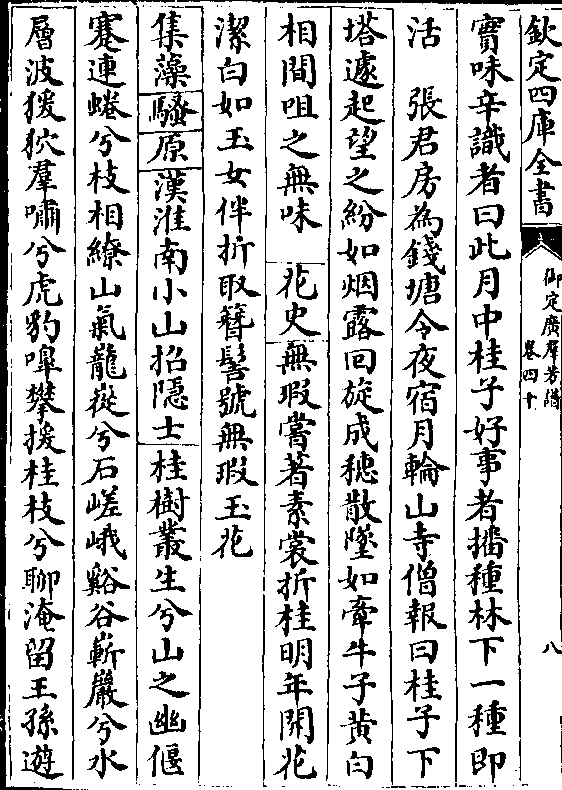 欽定四庫全書
御定廣羣芳譜
卷四十
八
實味辛識者曰此月中桂子好事者播種林下一種即
活　張君房為錢塘令夜宿月輪山寺僧報曰桂子下
塔遽起望之紛如烟霧回旋成穗散墜如牽牛子黄白
相間咀之無味　花史無瑕嘗著素裳折桂明年開花
潔白如玉女伴折取簪髻號無瑕玉花
集藻騷原漢淮南小山招隱士桂樹叢生兮山之幽偃
蹇連蜷兮枝相繚山氣巃嵸兮石嵯峨谿谷嶄巖兮水
層波猨狖羣嘯兮虎豹嘷攀援桂枝兮聊淹留王孫遊